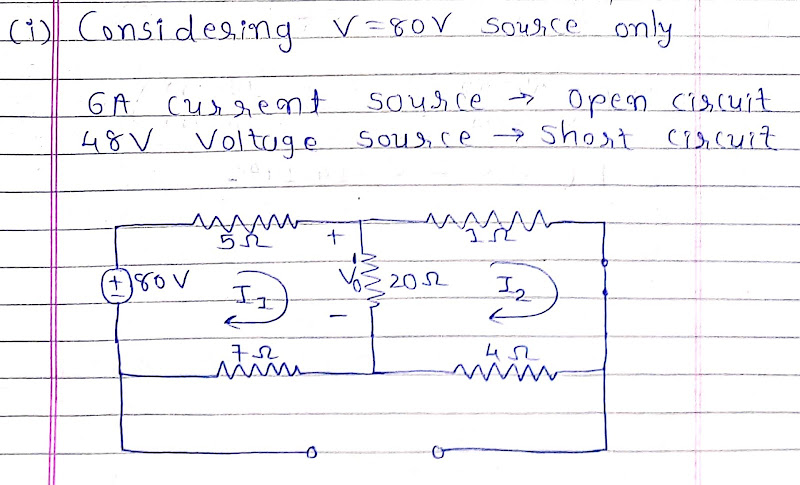 (i) Considering V=80V source only
6A current source → open circuit
48V Voltage source → short circuit
5Ω + 1Ω
+ 80V I1 V0' 20Ω I2
− −
7Ω 4Ω